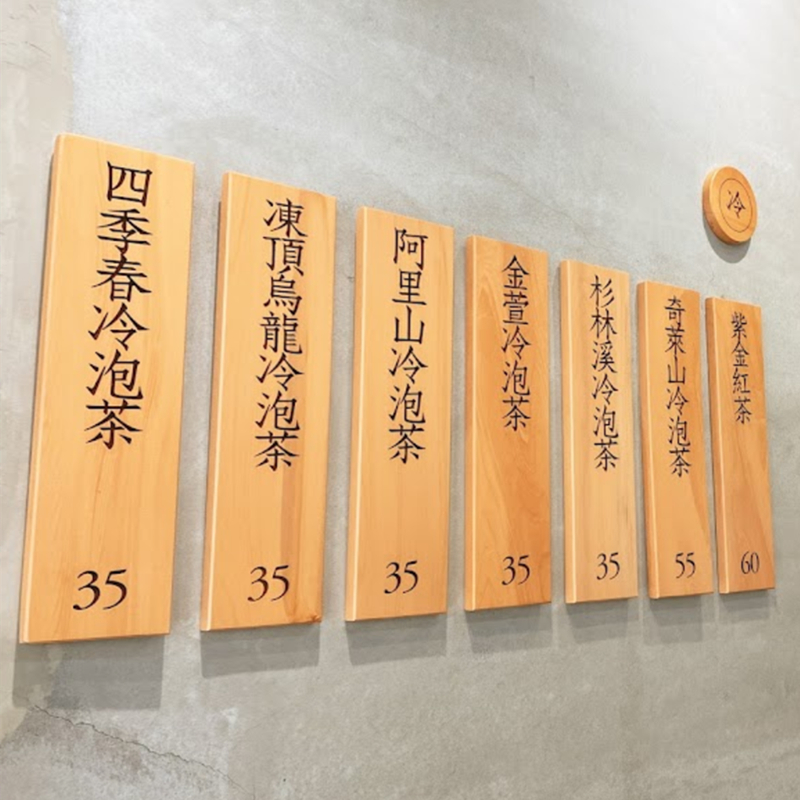 四季春冷泡茶
35
凍頂烏龍冷泡茶
35
阿里山冷泡茶
35
金萱冷泡茶
35
杉林溪冷泡茶
35
奇萊山冷泡茶
55
紫金紅茶
60
冷